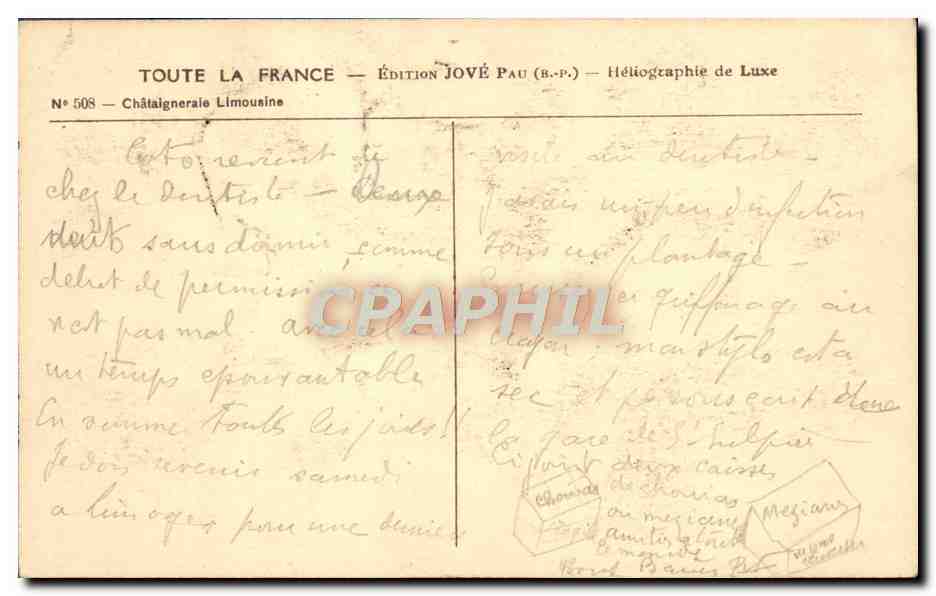 TOUTE LA FRANCE — ÉDITION JOVÉ PAU (B.-P.) — Héliographie de Luxe
Nº 508 — Châtaigneraie Limousine
revient de
chez le dentiste — Deux
nuits sans dormir, comme
début de permission
n'est pas mal. avec cela
un temps épouvantable
En somme toutes les joies!!
Je dois revenir samedi
a Limoges pour une dernière
visite au dentiste —
J'avais un peu d'infection
sous un plombage —
griffonnage au
crayon: mon stylo est a
sec et je vous écrit de
la gare de St Sulpice
Ci joint deux caisses
de chouias
ou meziane
amitiés a toute
la
Bons Baisers
Chouias
Mezianes
CPAPHIL